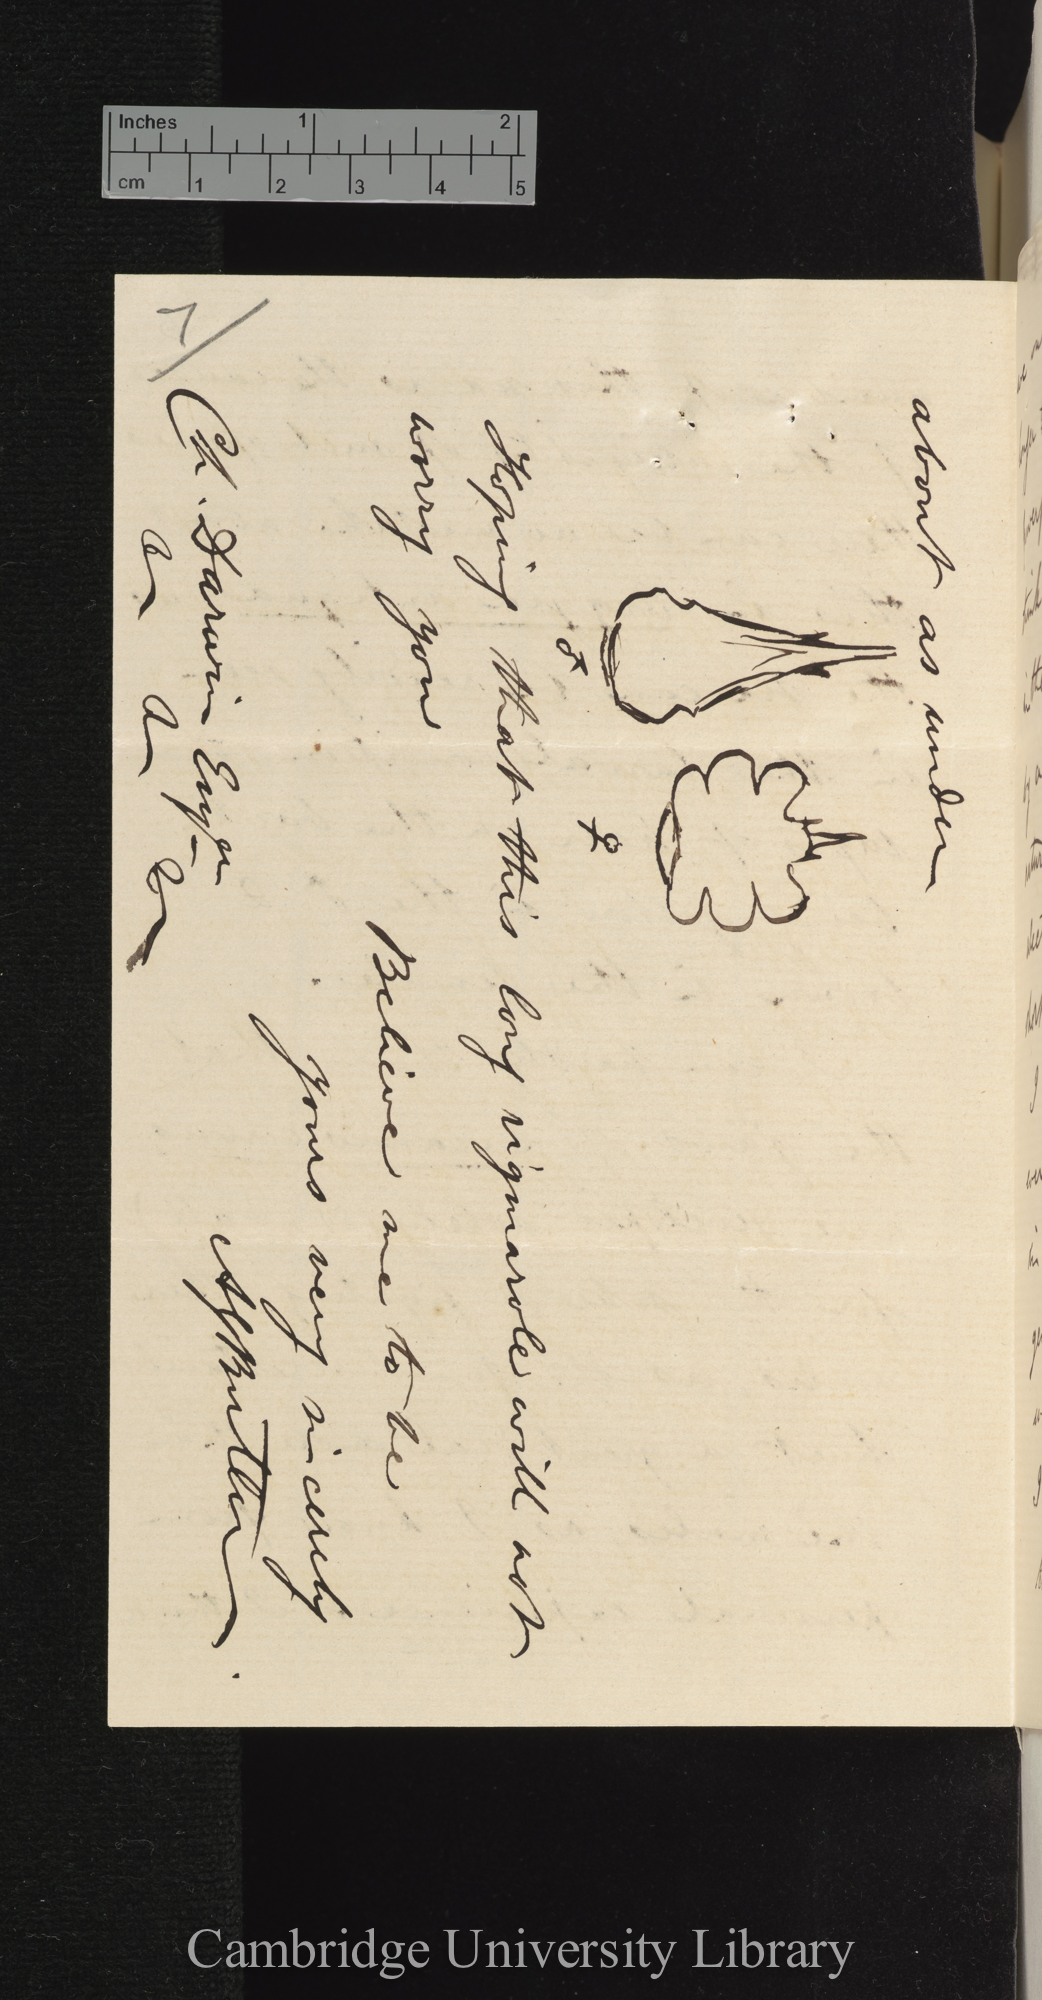 Inches 1 2
cm 1 2 3 4 5
about as under
♂ ♀
Hoping that this long rigmarole will not
worry you
Believe me to be
yours very sincerely
AGButler.
Ch. Darwin Esqre
&c &c &c
Cambridge University Library